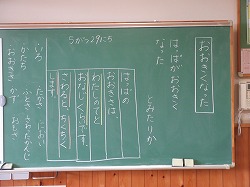 5がつ29にち
おおきくなった
はっぱがおおきく
なった
とみたりか
はっぱの
おおきさは、
わたしのてと
おなじくらいです。
さわると、ちくちく
します。
いろ
かたち
おおきさ
たかさ
ふとさ
かず
におい
さわったかんじ
おもさ